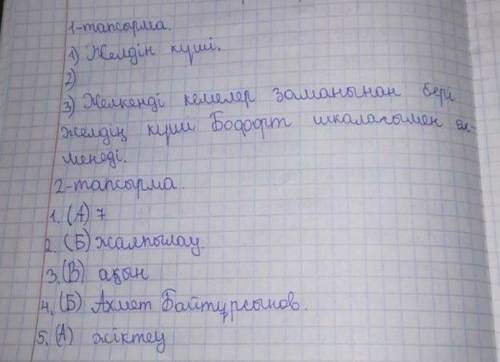 1-тапсырма.
1) Желдін күші.
2)
3) Желкенді кемелер заманынан бері
желдің күші Бофорт шкаласымен өл-
менеді.
2-тапсырма.
1. (А) 7
2. (Б) жалпылау
3. (В) ақын
4. (Б) Ахмет Байтұрсынов.
5. (А) жіктеу